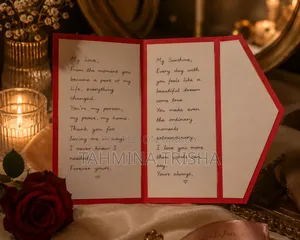 My love,
From the moment you
became a part of my
life, everything
changed.
You're my person,
my peace, my home.
Thank you for
loving me in ways
I never knew I
needed.
Forever yours,
My Sunshine,
Every day with
you feels like a
beautiful dream
come true.
You make even
the ordinary
moments
extraordinary.
I love you more
than
say.
Yours always,
TAHMINA TRISHA